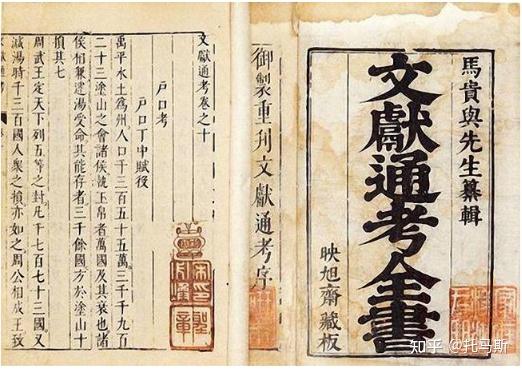 馬貴與先生纂輯
文獻通考全書
映旭齋藏板
御製重刊文獻通考序
文獻通考卷之十
戶口考
戶口丁中賦役
禹平水土為九州人口千三百五十五萬三千九百
二十三塗山之會諸侯執玉帛者萬國及其衰也諸
侯相兼逮湯受命其能存者三千餘國方於塗山十
損其七
周武王定天下列五等之封凡千七百七十三國又
減湯時千三百國人眾之損亦如之周公相成王致
知乎 @托马斯